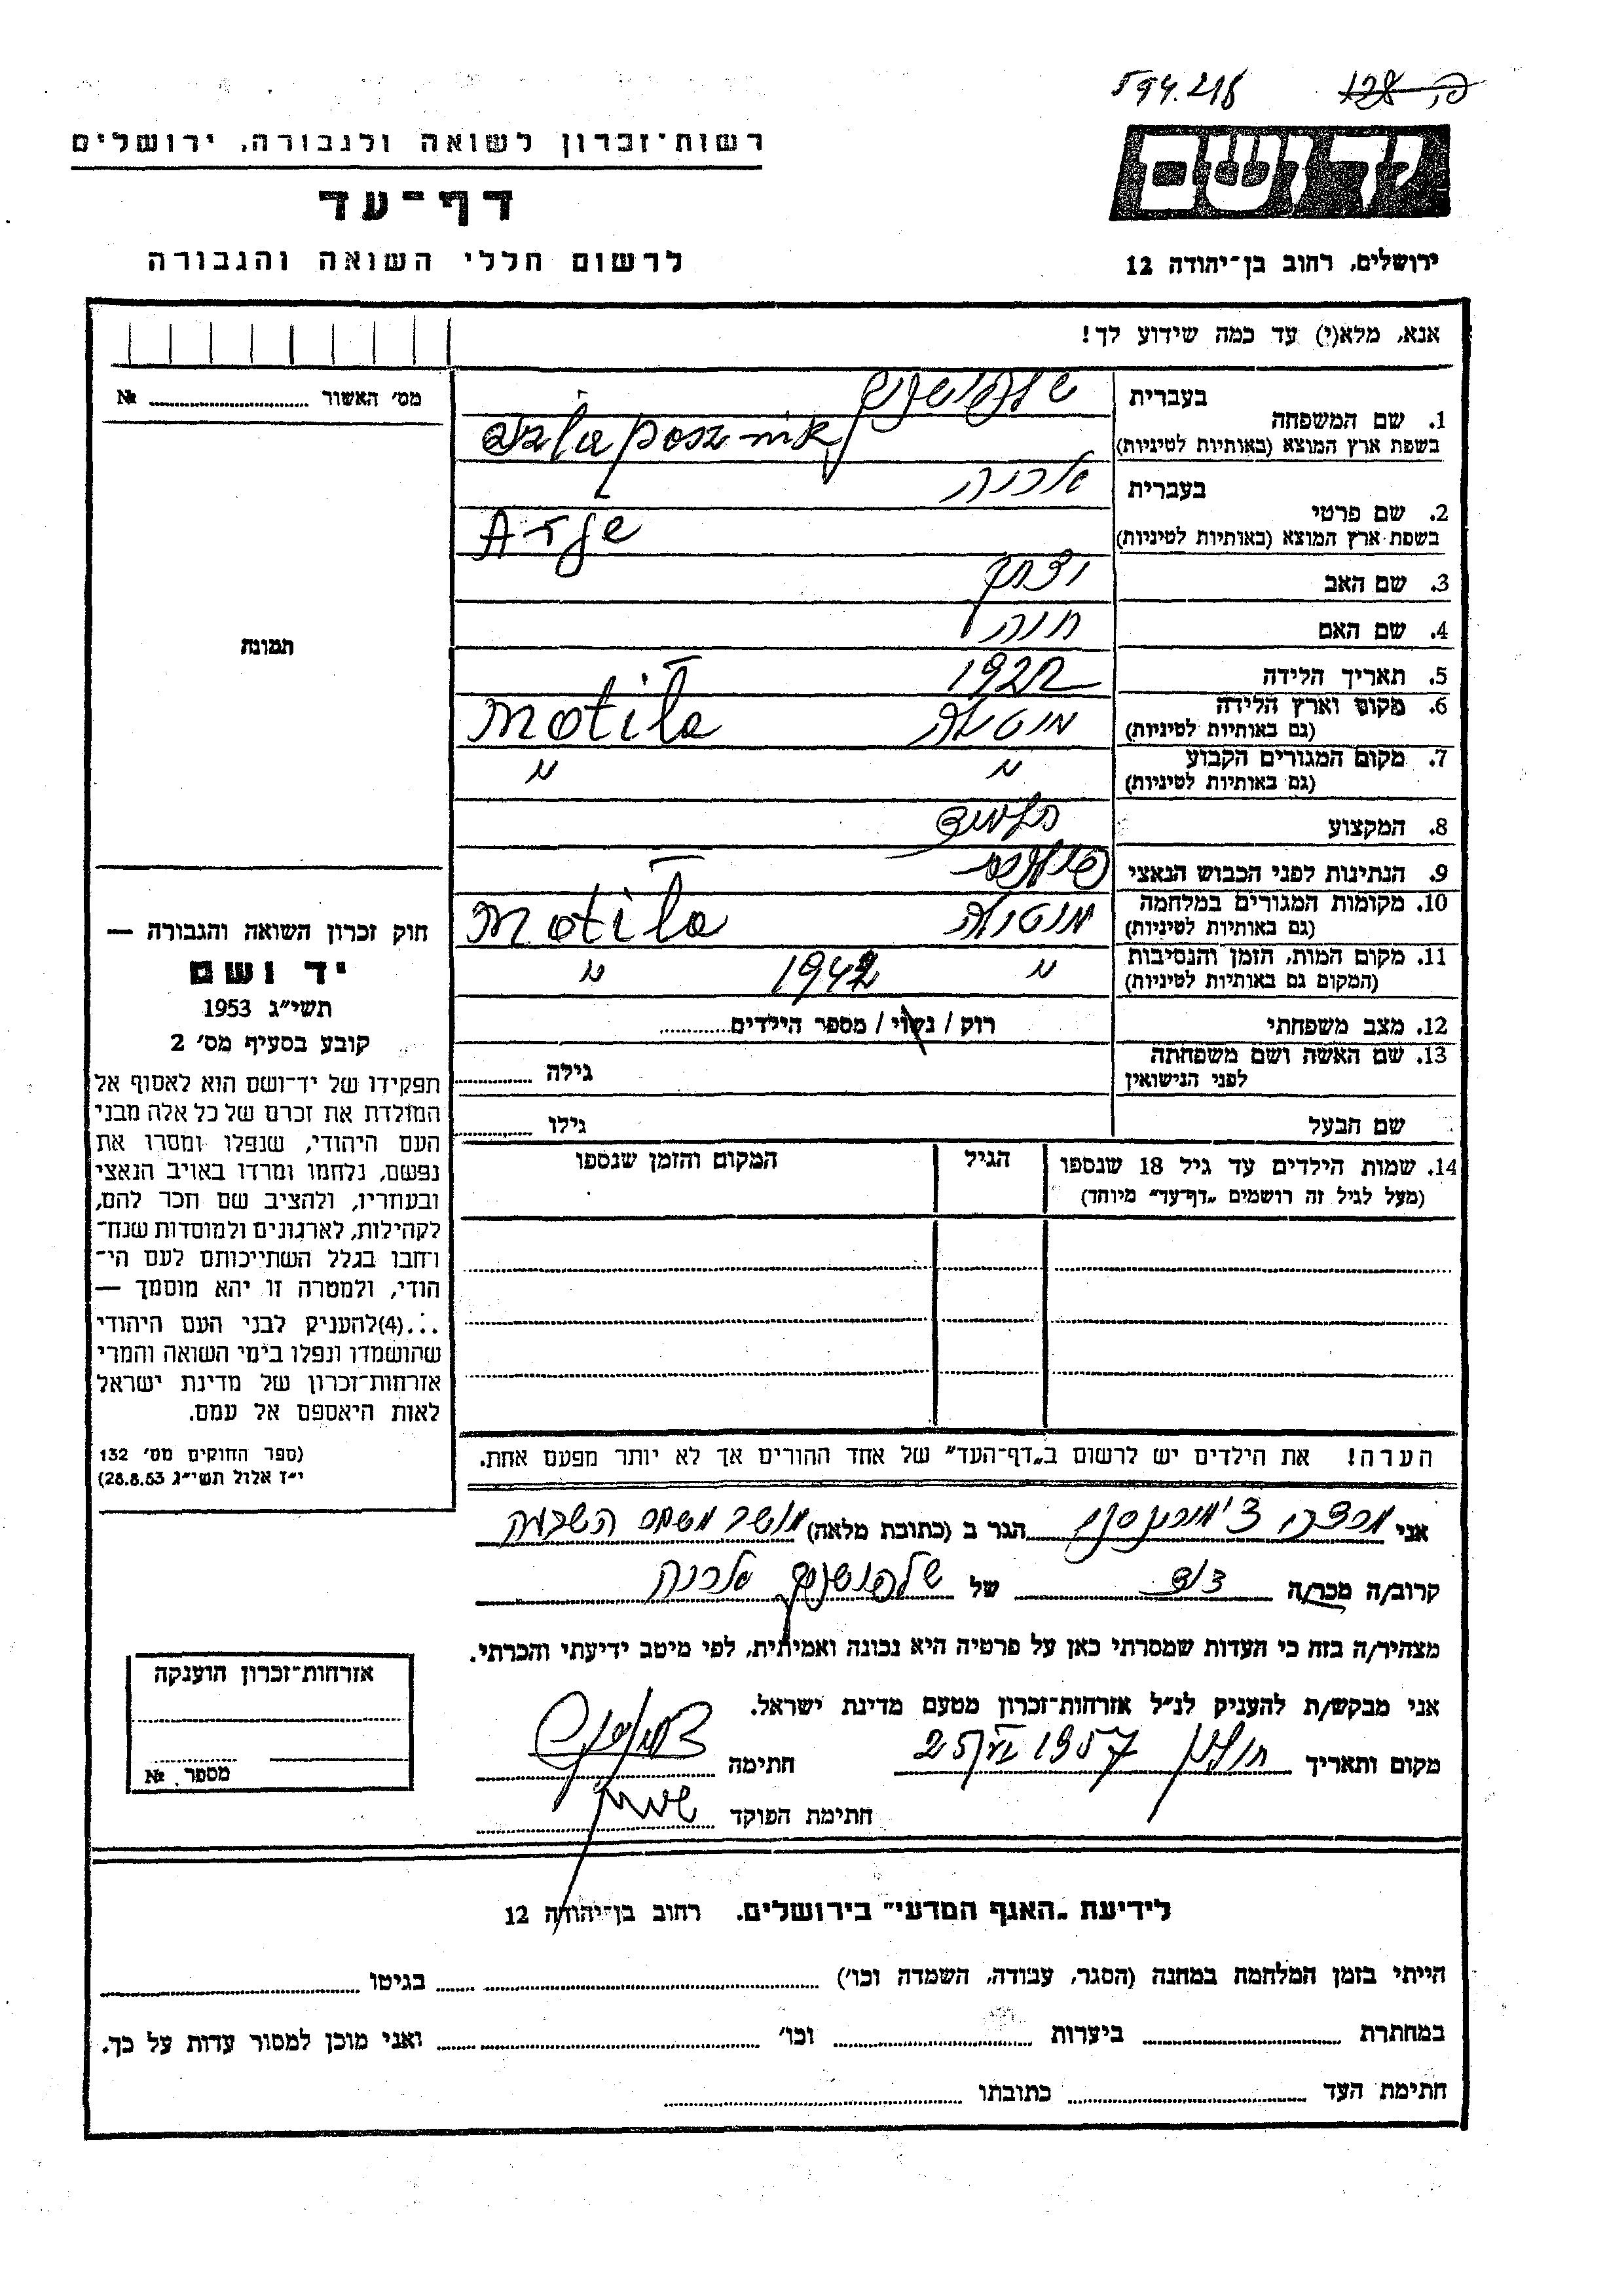 594.218
רשות־זכרון לשואה ולגבורה, ירושלים
דף־עד
לרשום חללי השואה והגבורה
יד ושם
ירושלים, רחוב בן־יהודה 12
אנא, מלא(י) עד כמה שידוע לך!
מס׳ האשור № ..........
תמונה
1. שם המשפחה בעברית
בשפת ארץ המוצא (באותיות לטיניות)
2. שם פרטי בעברית אריה
בשפת ארץ המוצא (באותיות לטיניות) Arje
3. שם האב יצחק
4. שם האם חנה
5. תאריך הלידה 1922
6. מקום וארץ הלידה
(גם באותיות לטיניות) Motila
7. מקום המגורים הקבוע
(גם באותיות לטיניות) " "
8. המקצוע תלמיד
9. הנתינות לפני הכבוש הנאצי
10. מקומות המגורים במלחמה
(גם באותיות לטיניות) Motila
11. מקום המות, הזמן והנסיבות
(המקום גם באותיות לטיניות) " 1942 "
12. מצב משפחתי רוק / נשוי / מספר הילדים..........
13. שם האשה ושם משפחתה
לפני הנישואין גילה ..........
שם הבעל גילו ..........
14. שמות הילדים עד גיל 18 שנספו הגיל המקום והזמן שנספו
(מעל לגיל זה רושמים „דף־עד" מיוחד)
הערה! את הילדים יש לרשום ב„דף־העד" של אחד ההורים אך לא יותר מפעם אחת.
חוק זכרון השואה והגבורה —
יד ושם
תשי״ג 1953
קובע בסעיף מס׳ 2
תפקידו של יד־ושם הוא לאסוף אל
המולדת את זכרם של כל אלה מבני
העם היהודי, שנפלו ומסרו את
נפשם, נלחמו ומרדו באויב הנאצי
ובעוזריו, ולהציב שם וזכר להם,
לקהילות, לארגונים ולמוסדות שנח־
רחבו בגלל השתייכותם לעם הי־
הודי, ולמטרה זו יהא מוסמך —
...(4)להעניק לבני העם היהודי
שהושמדו ונפלו בימי השואה והמרי
אזרחות־זכרון של מדינת ישראל
לאות היאספם אל עמם.
(ספר החוקים מס׳ 132
י״ז אלול תשי״ג 28.8.53)
אני הגר ב (כתובת מלאה) מושב
קרוב/ה מכר/ה דוד של אריה
מצהיר/ה בזה כי העדות שמסרתי כאן על פרטיה היא נכונה ואמיתית, לפי מיטב ידיעתי והכרתי.
אני מבקש/ת להעניק לנ״ל אזרחות־זכרון מטעם מדינת ישראל.
מקום ותאריך חולון 25 VI 1957 חתימה
חתימת הפוקד
אזרחות־זכרון הוענקה
מספר. №
לידיעת „האגף המדעי" בירושלים. רחוב בן־יהודה 12
הייתי בזמן המלחמה במחנה (הסגר, עבודה, השמדה וכו׳) .......... בגיטו ..........
במחתרת .......... ביערות .......... וכו׳ .......... ואני מוכן למסור עדות על כך.
חתימת העד .......... כתובתו ..........